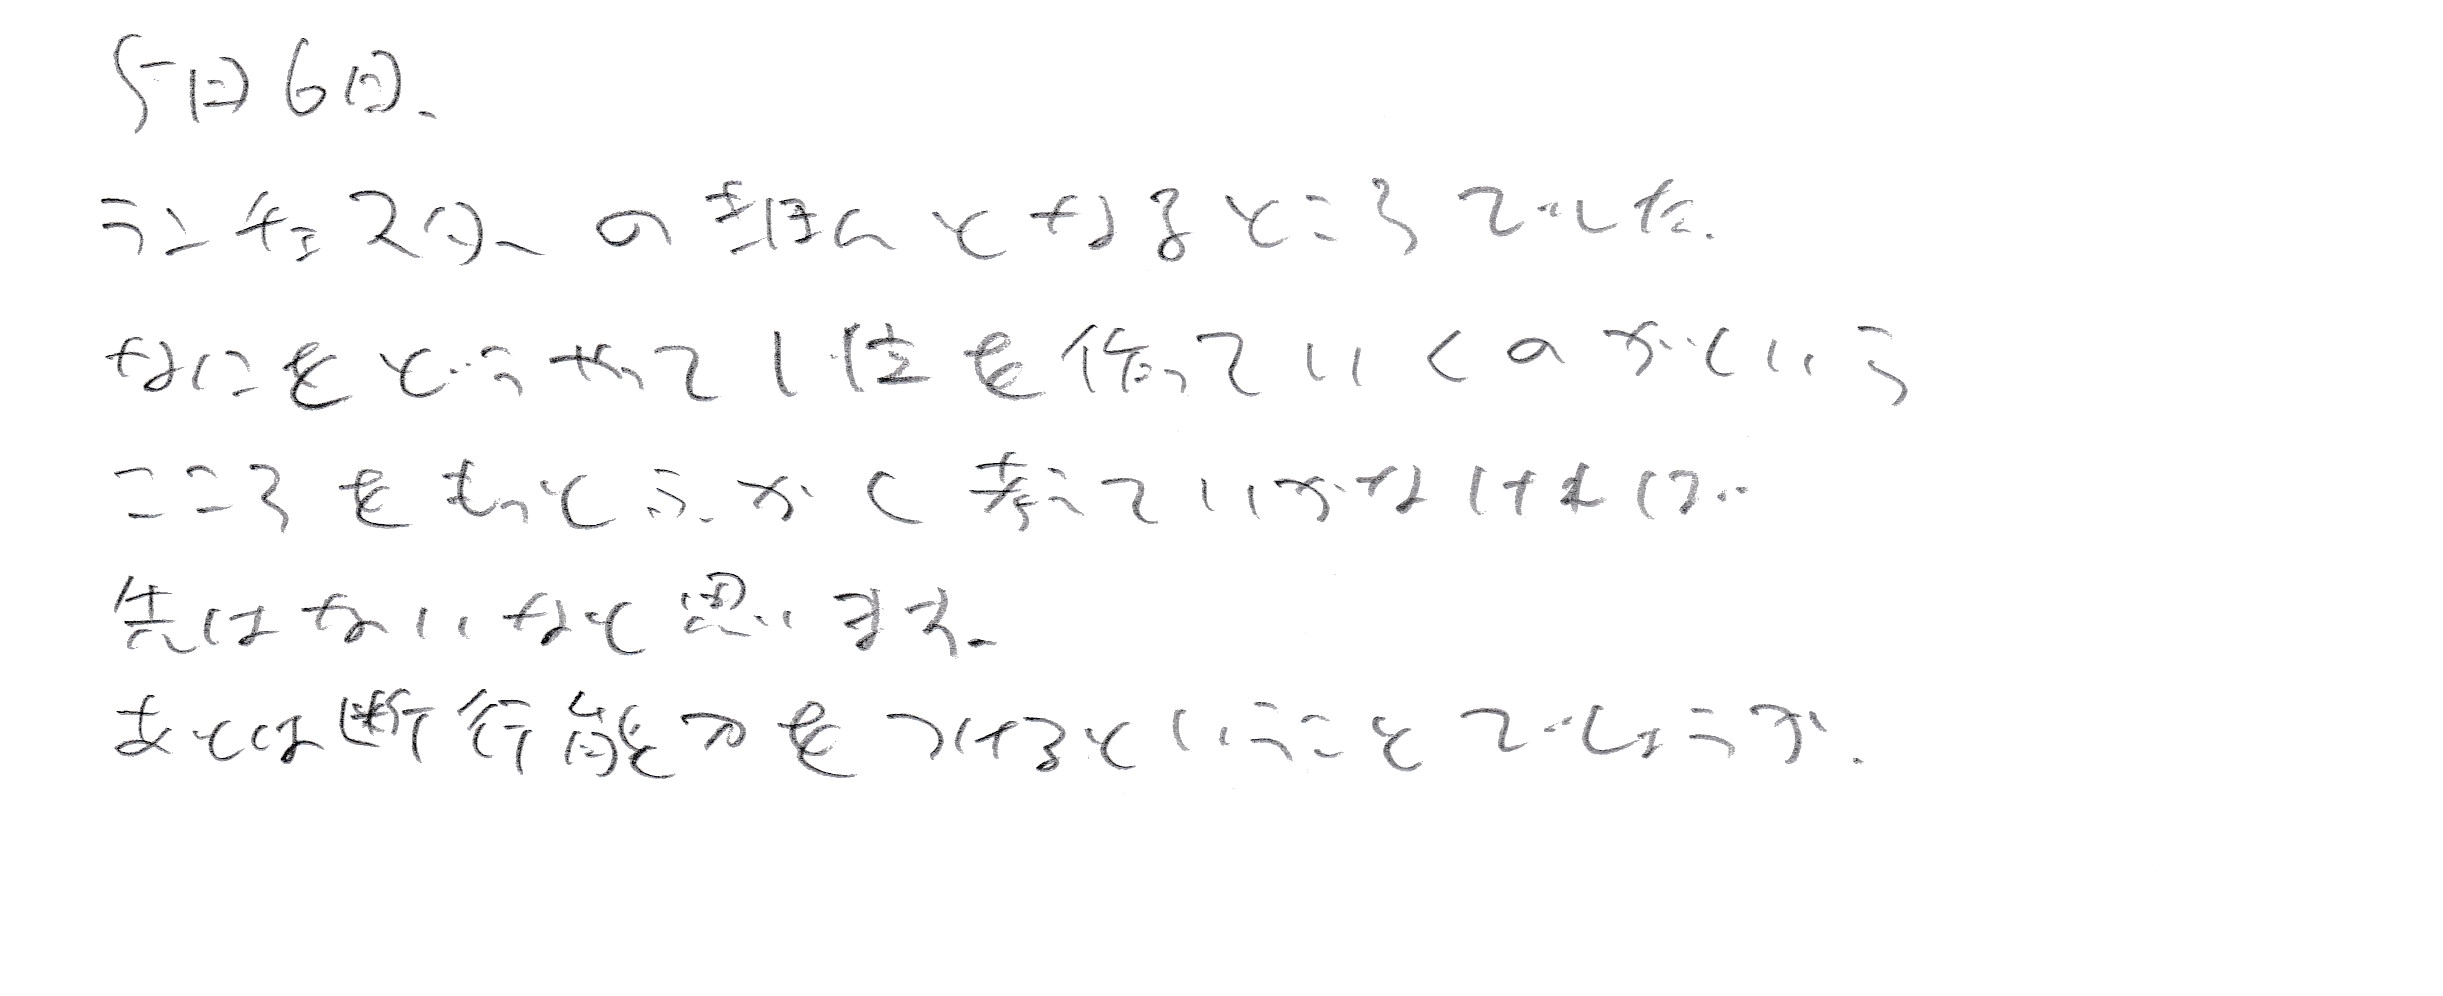 5回6回、
ランチェスターのきほんとなるところでした.
なにをどうやって1位を作っていくのかという
こころをもっとふかく考えていかなければ
先はないなと思います。
あとは断行能力をつけるということでしょうか.